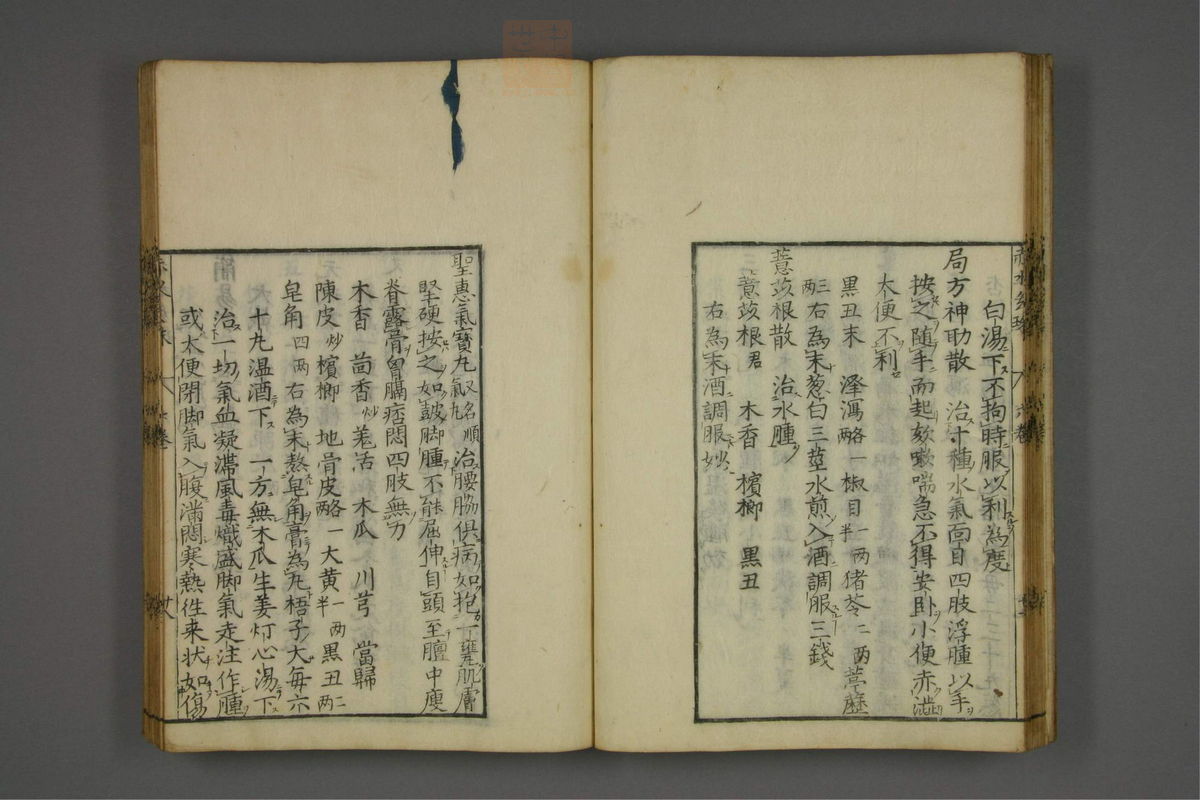 白湯下不拘時服以利為度
局方神助散 治十種水氣面目四肢浮腫以手
按之随手而起欬嗽喘急不得安卧小便赤澁
大便不利
黒丑末 澤瀉略一 椒目一両半 猪苓二両 葶藶
三両 右為末葱白三莖水煎入酒調服三錢
薏苡根散 治水腫
三薏苡根君 木香 檳榔 黒丑
右為末酒調服妙
聖惠氣寶丸又名順氣丸 治腰脇俱病如抱一甕肌膚
堅硬按之如鼓脚腫不能屈伸自頭至膻中瘦
脊露骨胷膈痞悶四肢無力
木香 茴香炒 羗活 木瓜 川芎 當歸
陳皮炒 檳榔 地骨皮略一両 大黄一両半 黒丑二両
皂角四両 右為末熬皂角膏為丸梧子大每六
十丸温酒下 一方無木瓜生姜灯心湯下
治一切氣血凝滯風毒熾盛脚氣走注作腫
或大便閉脚氣入腹滿悶寒熱徃来状如傷